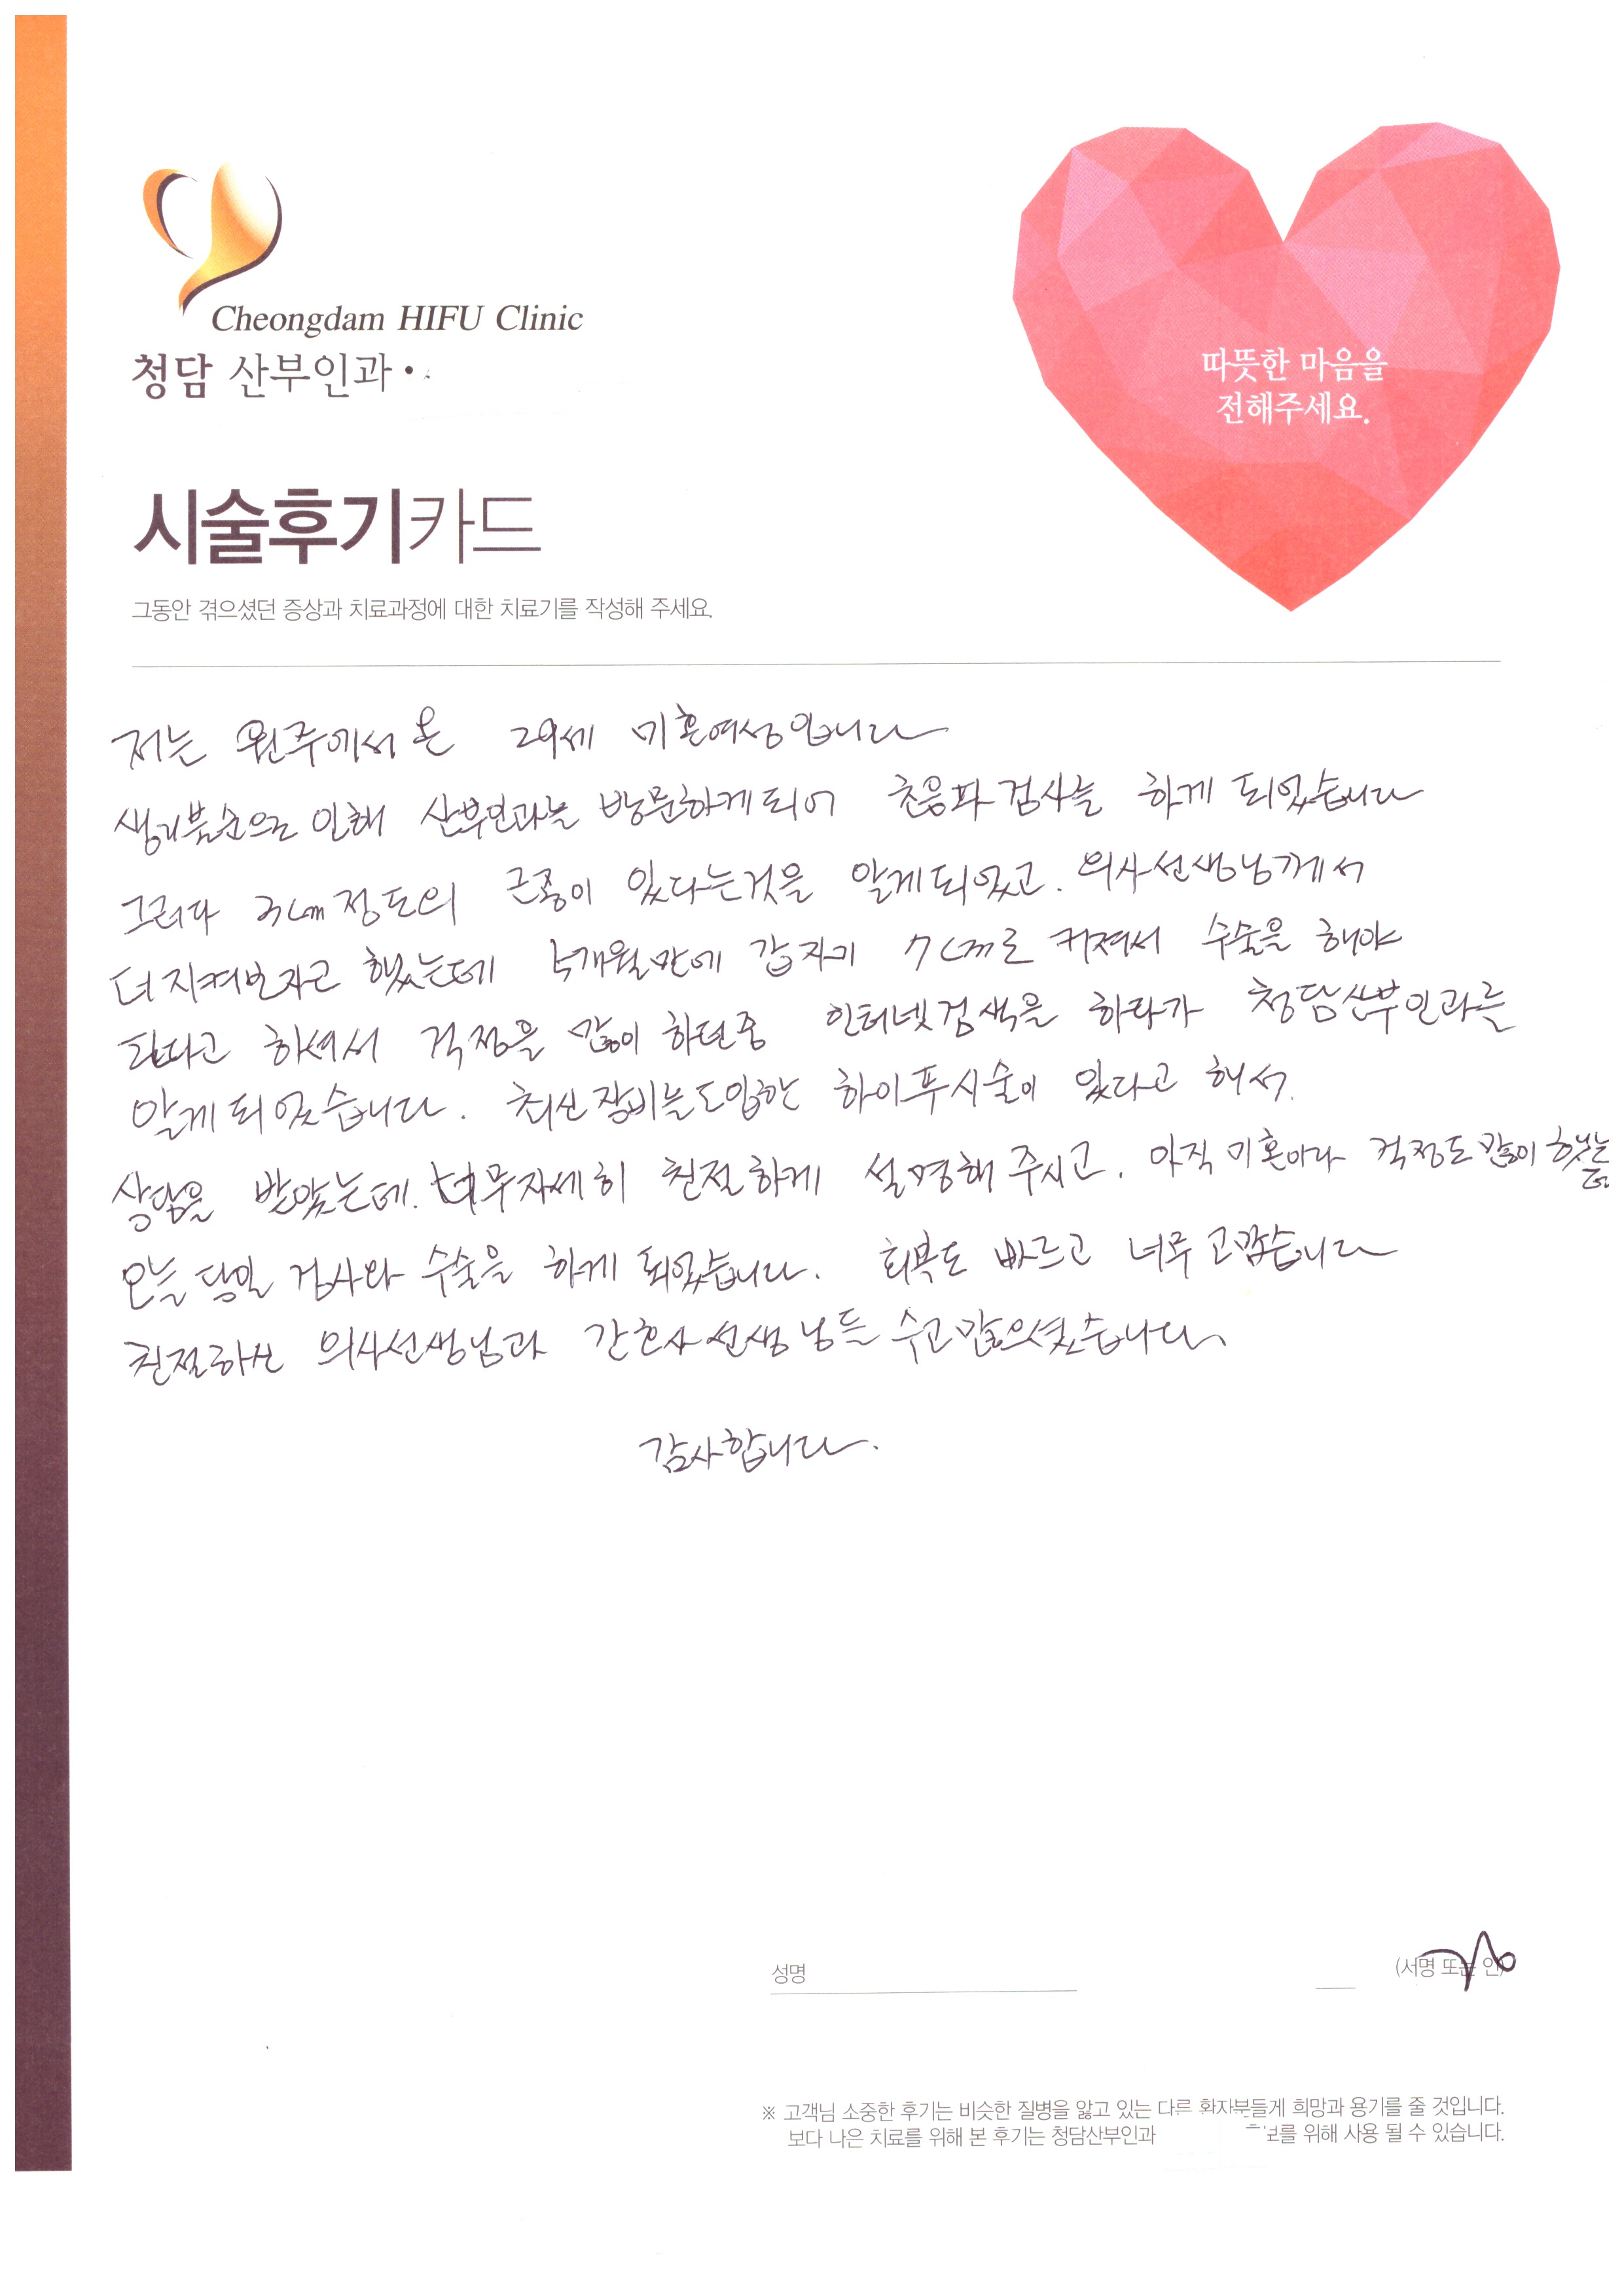 Cheongdam HIFU Clinic
청담 산부인과
따뜻한 마음을
전해주세요.
시술후기카드
그동안 겪으셨던 증상과 치료과정에 대한 치료기를 작성해 주세요.
저는 원주에서 온 29세 미혼여성입니다
생리불순으로 인해 산부인과를 방문하게되어 초음파검사를 하게 되었습니다
그러다 3cm정도의 근종이 있다는것을 알게되었고. 의사선생님께서
더지켜보자고 했는데 5개월만에 갑자기 7cm로 커져서 수술을 해야
된다고 하셔서 걱정을 많이 하던중 인터넷검색을 하다가 청담산부인과를
알게되었습니다. 최신장비를도입한 하이푸시술이 있다고 해서.
상담을 받았는데. 너무자세히 친절하게 설명해주시고. 아직미혼이라 걱정도많이했는데
오늘 당일 검사와 수술을 하게 되었습니다. 회복도 빠르고 너무고맙습니다
친절하신 의사선생님과 간호사선생님들 수고많으셨습니다.
감사합니다.
성명
(서명 또는 인)
※ 고객님 소중한 후기는 비슷한 질병을 앓고 있는 다른 환자분들게 희망과 용기를 줄 것입니다.
보다 나은 치료를 위해 본 후기는 청담산부인과 보를 위해 사용 될 수 있습니다.